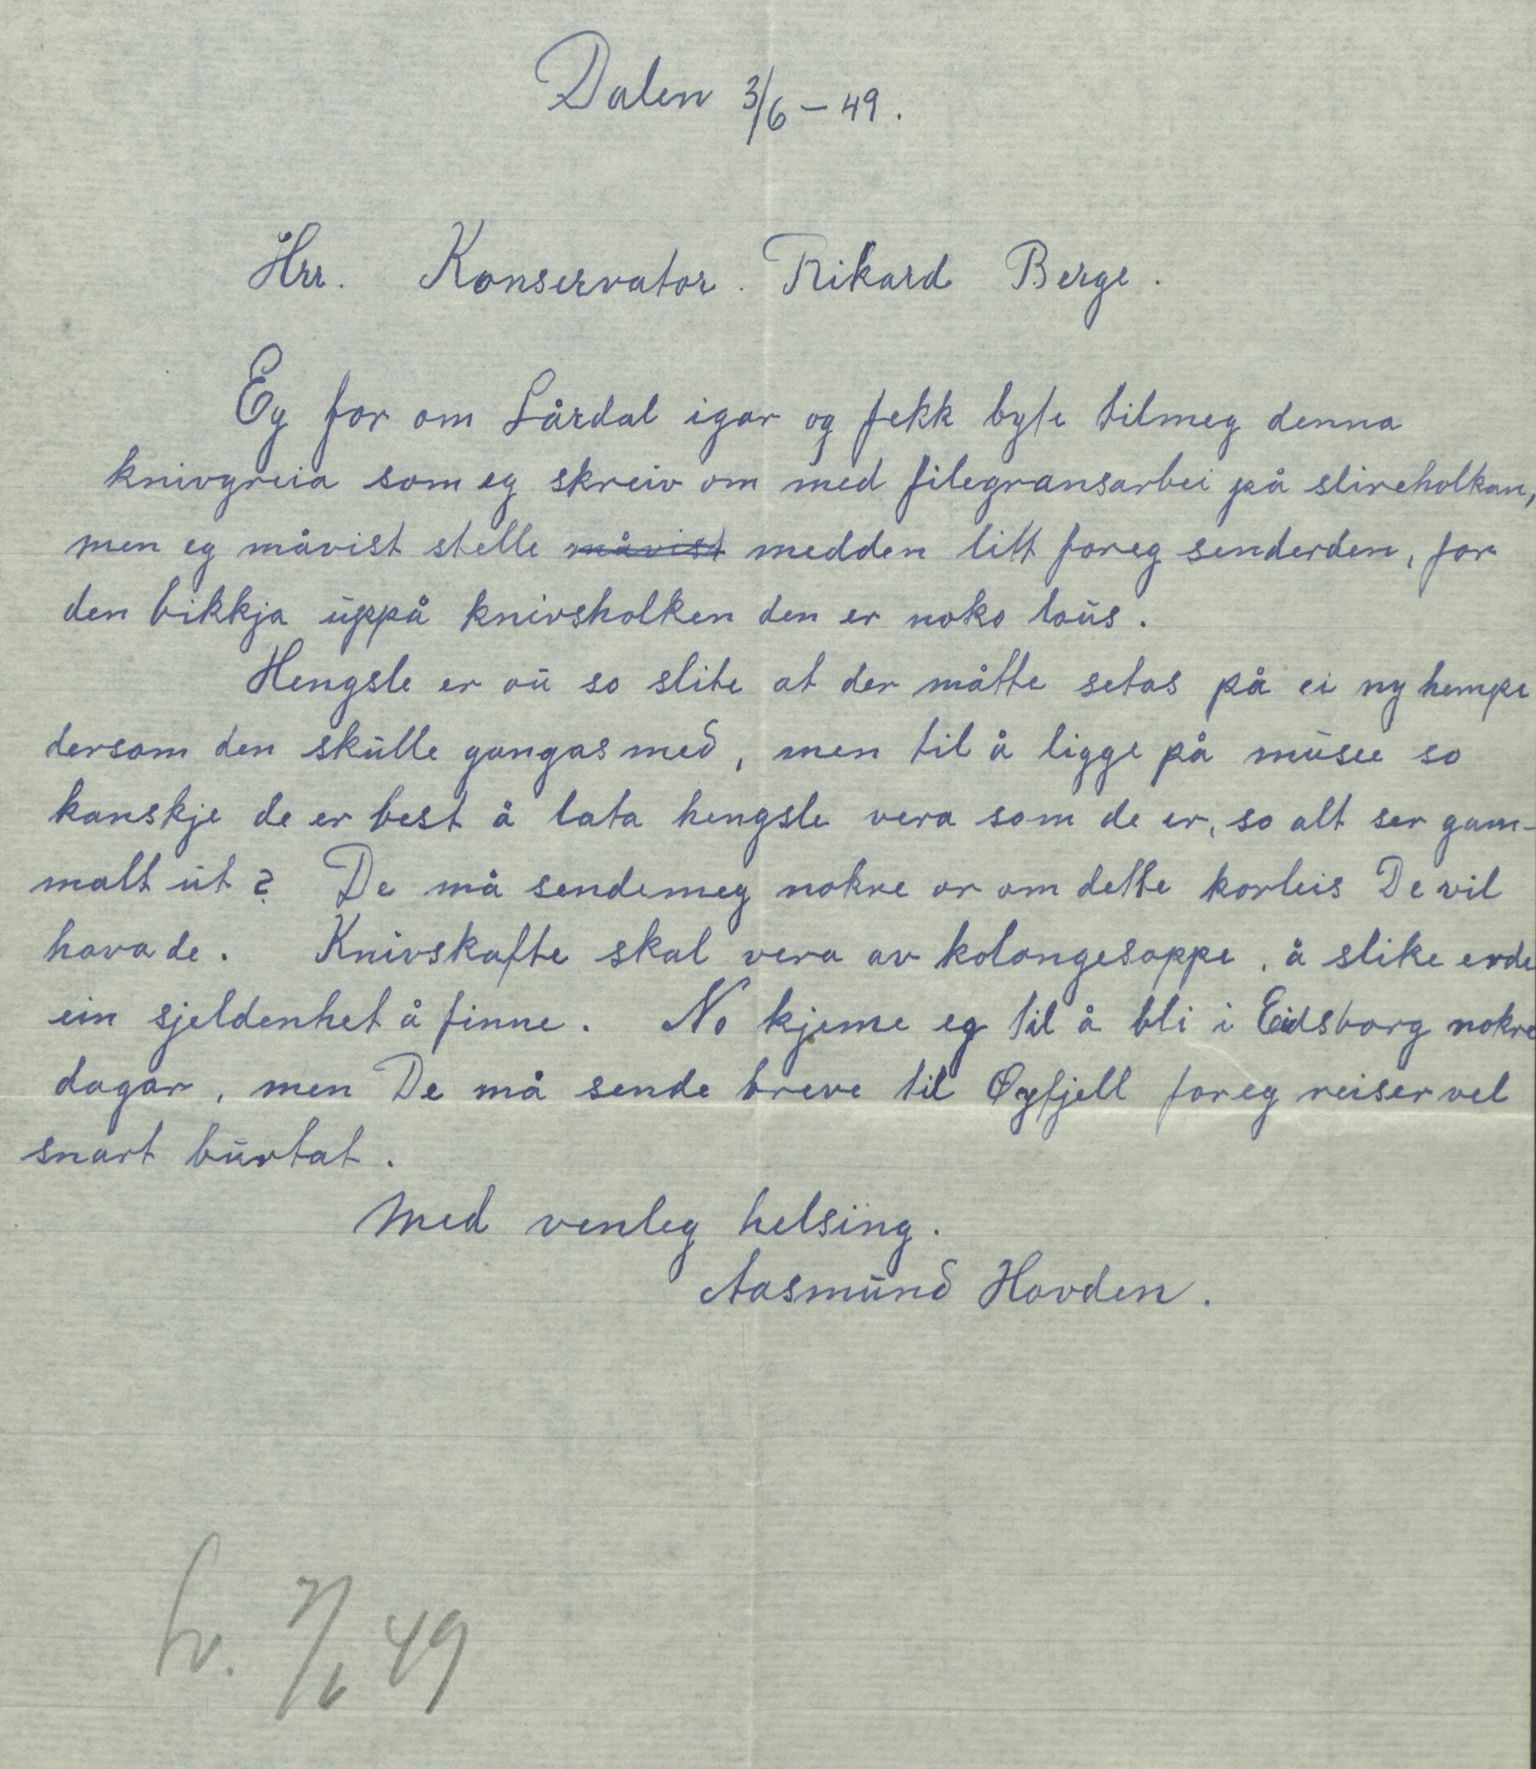 Dalen 3/6 – 49.
Hrr. Konservator. Rikard Berge.
Eg for om Lårdal igar og fekk byte tilmeg denna
knivgreia som eg skreiv om med filegransarbei på slireholkan,
men eg måvist stelle ~~måvist~~ medden litt foreg senderden, for
den bikkja uppå knivsholken den er noko lous.
Hengsle er ou so slite at der måtte setas på ei ny hempe
dersom den skulle gangas med, men til å ligge på musee so
kanskje de er best å lata hengsle vera som de er, so alt ser gam-
malt ut? De må sendemeg nokre or om dette korleis De vil
hava de. Knivskafte skal vera av kolangesoppe, å slike erde
ein sjeldenhet å finne. No kjeme eg til å bli i Eidsborg nokre
dagar, men De må sende breve til Øyfjell foreg reiser vel
snart burtat.
Med venleg helsing.
Aasmund Hovden.
Sv. 7/6 49